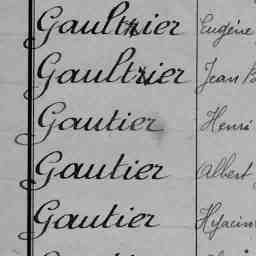 Gaultier Eugène
Gaultier Jean
Gautier Henri
Gautier Albert
Gautier Hyacin